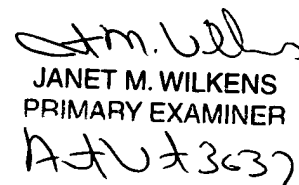 J.M. Wilkens
JANET M. WILKENS
PRIMARY EXAMINER
Art Unit 3637